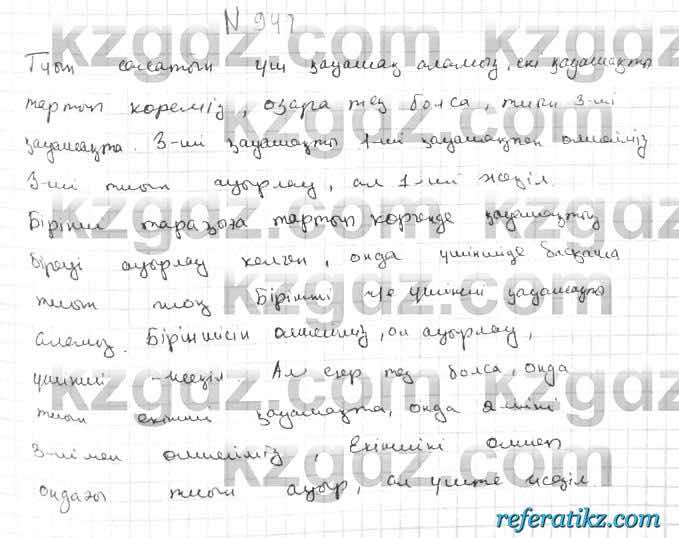 N 947
Тиын салатын үш қауашақ аламыз, екі қауашақты
тартып көреміз, өзара тең болса, тиын 3-ші
қауашақта. 3-ші қауашақты 1-ші қауашақпен өлшейміз
3-ші тиын ауырлау, ал 1-ші жеңіл.
Бірінші таразыға тартып көргенде қауашақтың
біреуі ауырлау келген, онда үшіншіде басқаша
тиын жоқ Бірінші не үшінші қауашақты
аламыз. Біріншісін өлшейміз, ол ауырлау,
үшінші - жеңіл. Ал егер тең болса, онда
тиын екінші қауашақта, онда 2-шіні
3-шімен өлшейміз, Екіншіні өлшеп
ондағы тиын ауыр, ал үште жеңіл.
kzgdz.com
referatikz.com